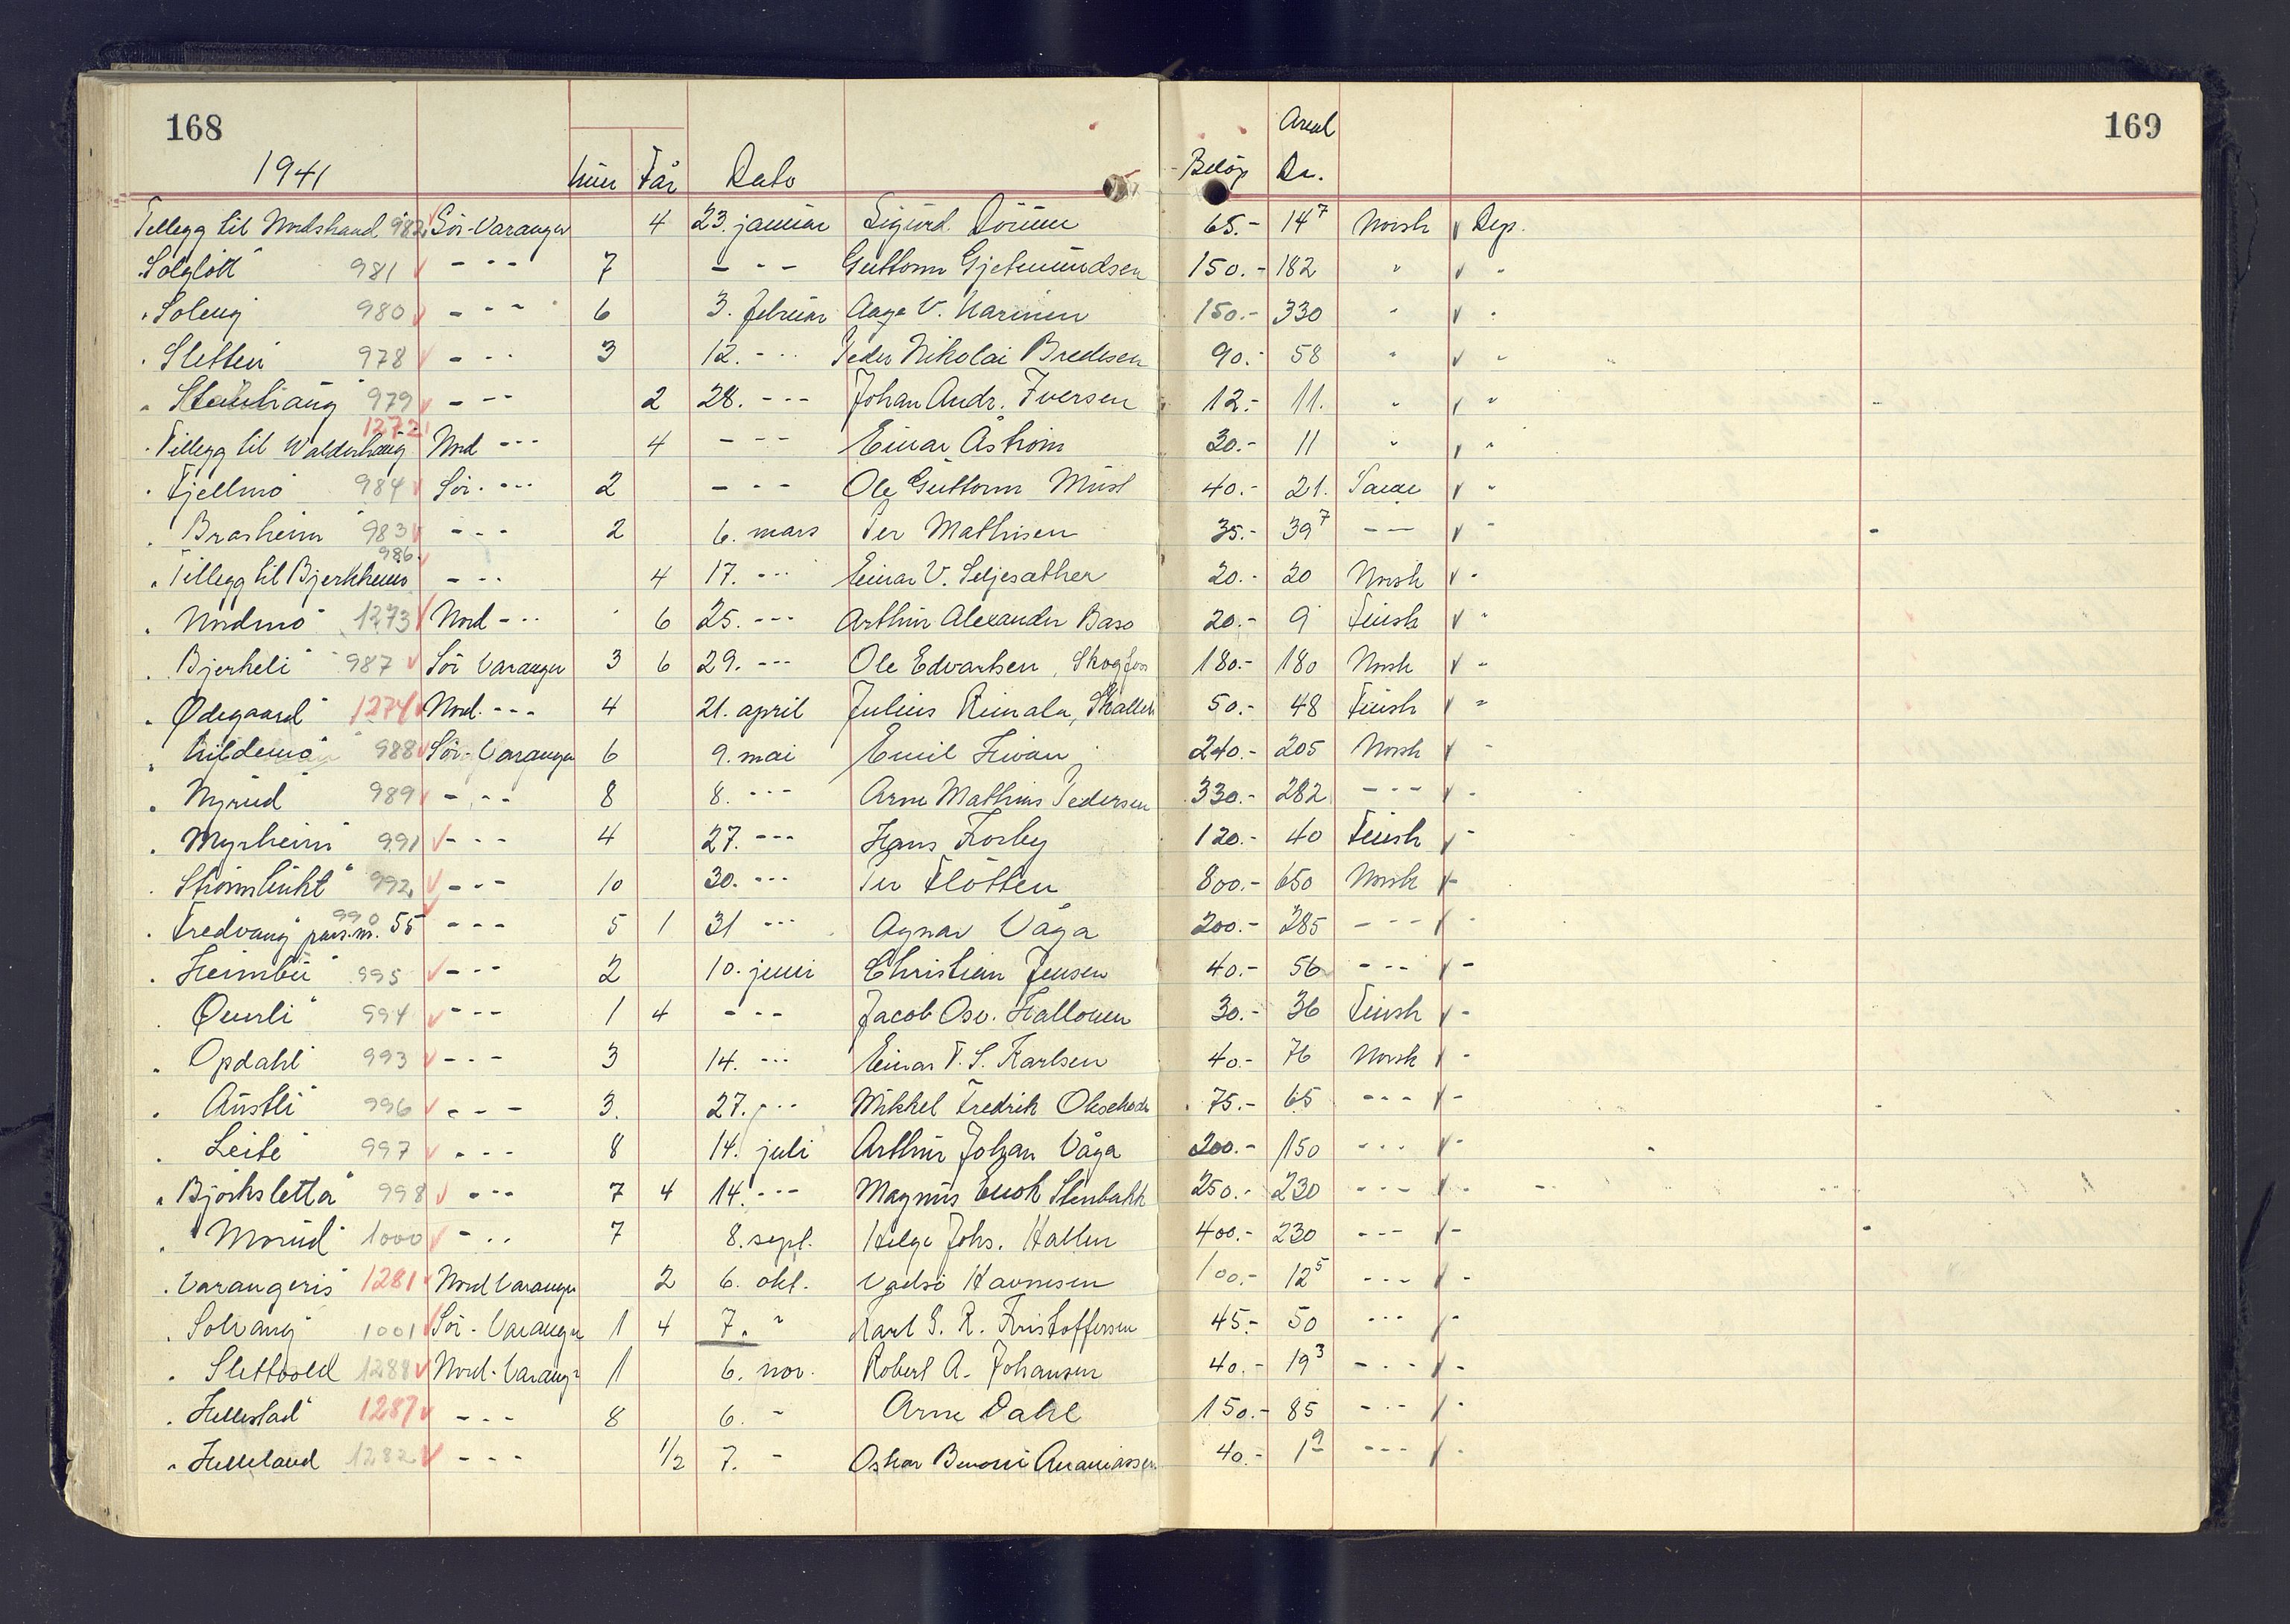 168 169
1941 Kuer Får Dato Beløp Areal Da.
Tillegg til Nordstrand 982 Sör-Varanger 4 23. januar Sigurd Dörum 65.- 14⁷ Norsk v Dep.
"Solglött" 981 v - - - 7 - - - Guttorm Gjetmundsen 150.- 182 " v "
"Soleng 980 v - - - 6 3. februar Aage V. Karinen 150.- 330 " v "
" Sletten 978 v - - - 3 12. - - - Peder Nikolai Bredesen 90.- 58 " v "
" 979 v - - - 2 28. - - - Johan Andr. Iversen 12.- 11. " v "
1272
" Tillegg til Walderhaug Nord - - - 4 - - - Einar Åström 30.- 11 " v "
" Fjellmo" 984 v Sör - - - 2 - - - Ole Guttorm 40.- 21. v "
" Brasheim" 983 v - - - 2 6. mars Per Mathisen 35.- 39⁷ - - v "
986 v
" Tillegg til Bjerkhemo - - - 4 17. - - - Einar V. Seljesæther 20.- 20 Norsk v "
" Nordmo" 1273 v Nord - - - 6 25. - - - Arthur Alexander Baso 20.- 9 Finsk v "
" Bjerkeli" 987 v Sör Varanger 3 6 29. - - - Ole Edvartsen, Skogfoss 180.- 180 Norsk v "
" Ødegaard" 1274 v Nord. - - - 4 21. april Julius 50.- 48 Finsk v "
" 988 v Sör-Varanger 6 9. mai Emil 240.- 205 Norsk v "
" Nyrud" 989 v - - - 8 8. - - - Arne Mathias Pedersen 330.- 282 - - - v "
" Myrheim" 991 v - - - 4 27. - - - Hans Korby 120.- 40 Finsk v "
" Strømbukt" 992 v - - - 10 30. - - - Per Flötten 800.- 650 Norsk v -
990 v
" Fredvang" pars.nr. 55 - - - 5 1 31 - - - Agnar Våga 200.- 285 - - - v "
" Heimbu" 995 v - - - 2 10. juni Christian Jensen 40.- 56 - - - v -
" 994 v - - - 1 4 - - - Jacob Osv. Hallonen 30.- 36 Finsk v -
" Opdahl" 993 v - - - 3 14. - - - Einar F. S. Karlsen 40.- 76 Norsk v -
" Austli" 996 v - - - 3. 27. - - - Mikkel Fredrik 75.- 65 - - - v -
" Leite" 997 v - - - 8 14. juli Arthur Johan Våga 200.- 150 - - - v -
" Björksletta" 998 v - - - 7 4 14. - - - Magnus Enok Stenbakk 250.- 230 - - - v -
" Morud" 1000 v - - - 7 8. sept. Helge Johs. Hallen 400.- 230 - - - v -
" Varangeris" 1281 v Nord Varanger 2 6. okt. Vadsö 100.- 12⁵ - - - v -
" Solvang" 1001 v Sör-Varanger 1 4 7. " Karl G. R. Kristoffersen 45.- 50 - - - v -
" Slettvold 1288 v Nord-Varangr 1 6. nov. Robert A. Johansen 40.- 19³ - - - v -
" Hellestad" 1287 v - - - 8 6. - Arne Dahl 150.- 85 - - - v -
" Helleland 1282 v - - - 1/2 7. - Oskar Benoni Ananiassen 40.- 1⁹ - - - v -